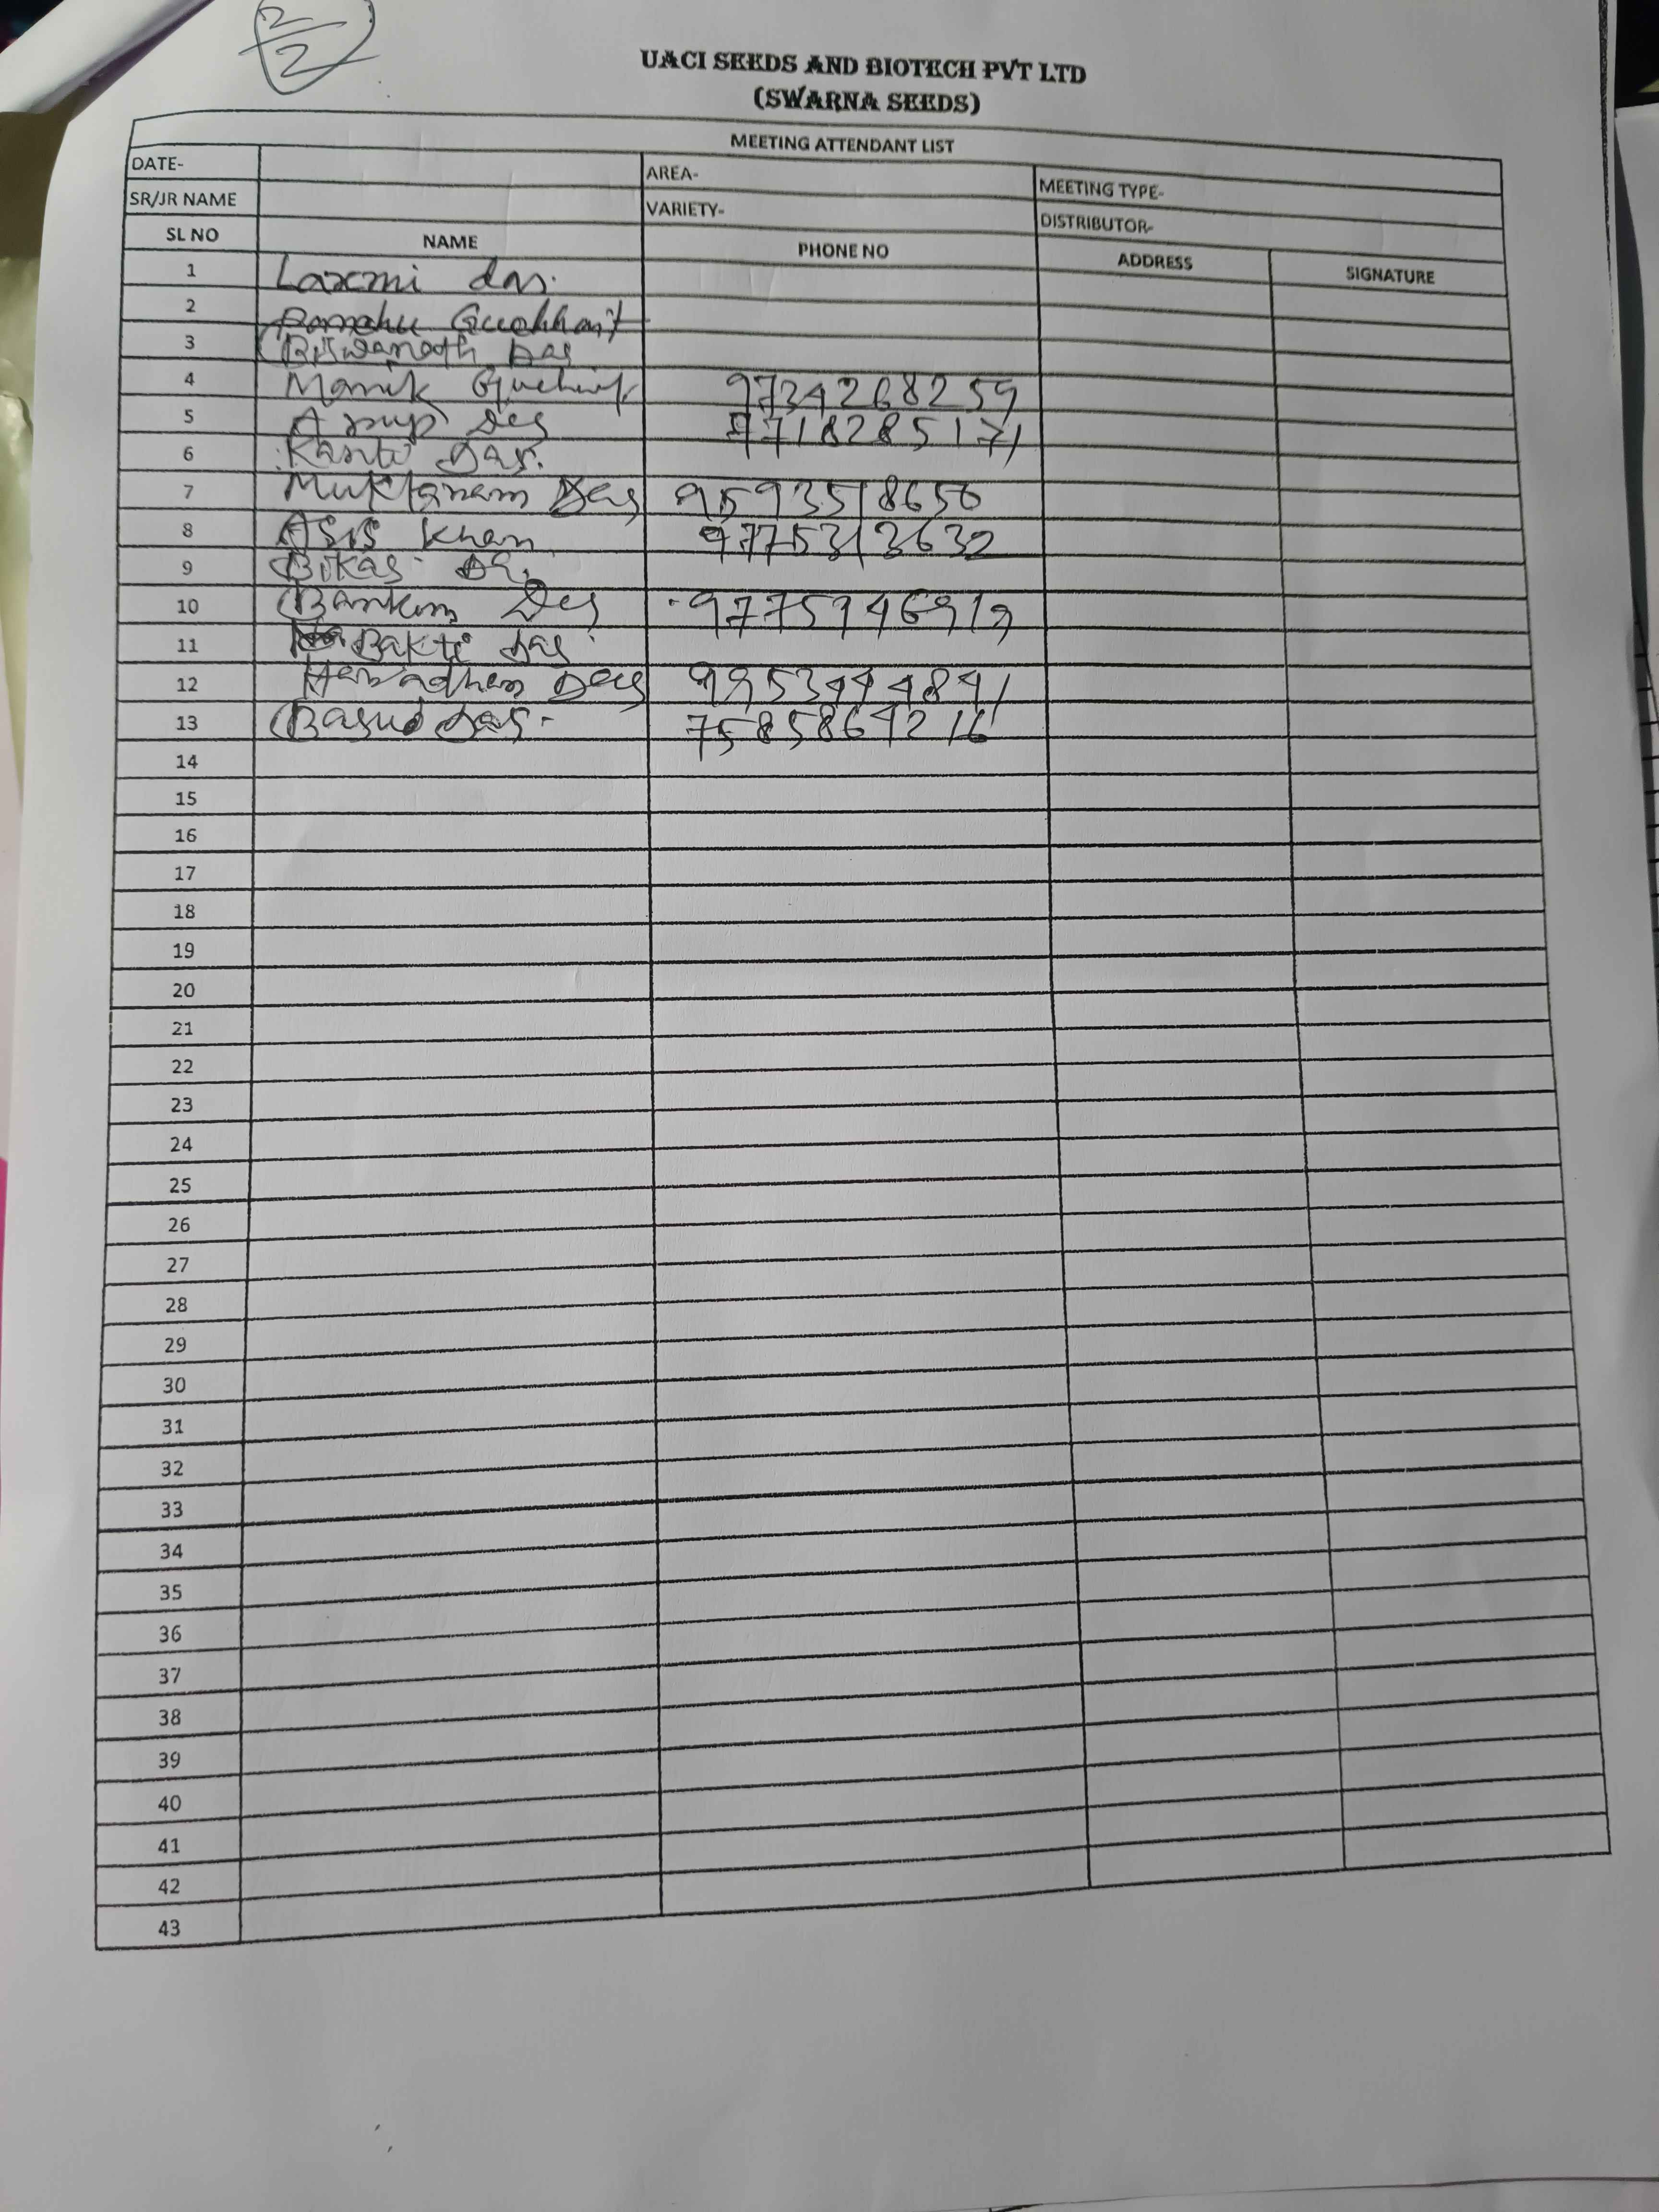 2/2
UACI SEEDS AND BIOTECH PVT LTD
(SWARNA SEEDS)
MEETING ATTENDANT LIST
DATE- AREA- MEETING TYPE-
SR/JR NAME VARIETY- DISTRIBUTOR-
SL NO NAME PHONE NO ADDRESS SIGNATURE
1 Laxmi das.
2
3 Biswanath Das
4 Manik 9734268259
5 Anup Des 9718285171
6 Kanti Das.
7 Muktaram Das 9593518656
8 ASIS Khan 9775313632
9 Bikas
10 Bankim Des
11 Bakti Das
12 Haradhan Das
13 Basud Das-
14
15
16
17
18
19
20
21
22
23
24
25
26
27
28
29
30
31
32
33
34
35
36
37
38
39
40
41
42
43